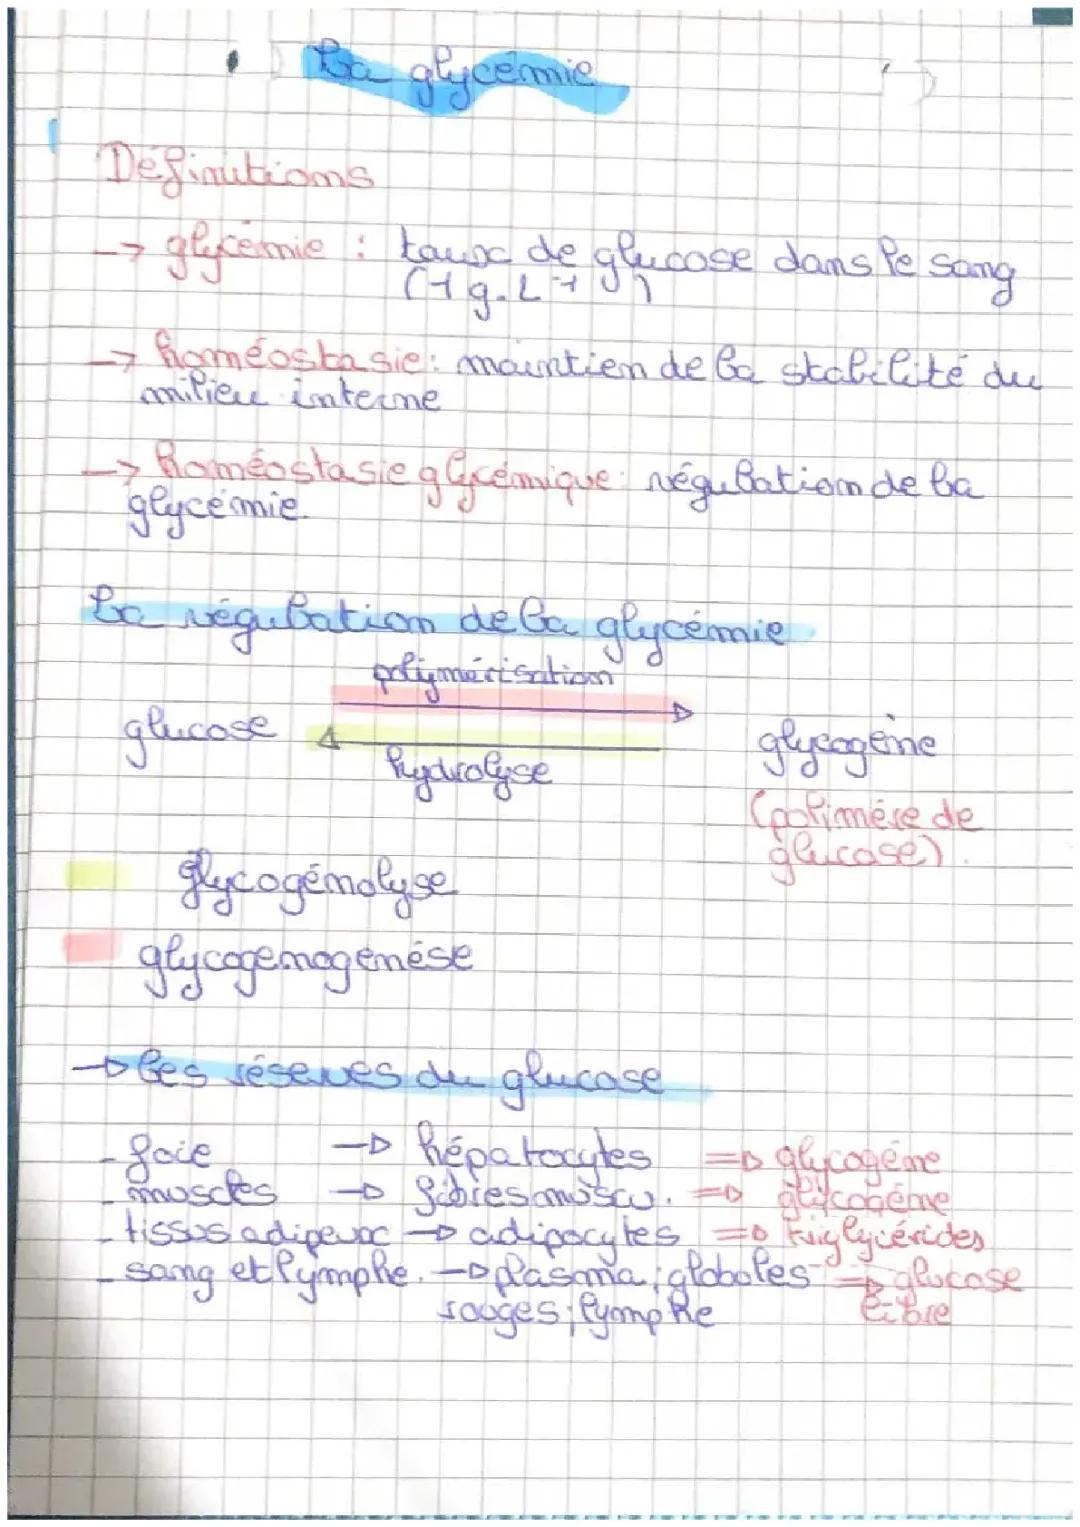 La glycémie
Définitions
-> glycémie : taux de glucose dans le sang
(1 g.L-1)
-> homéostasie : maintien de la stabilité du
milieu interne
-> homéostasie glycémique : régulation de la
glycémie.
La régulation de la glycémie
polymérisation
glucose
glycogène
hydrolyse
(polimère de
glucose).
glycogénolyse
glycogenogenèse
→ les réserves du glucose
- foie → hépatocytes => glycogène
- muscles → fibres muscu. => glycogène
- tissus adipeux → adipocytes => triglycérides
- sang et lymphe. → plasma ; globoles => glucose
rouges ; lymphe libre